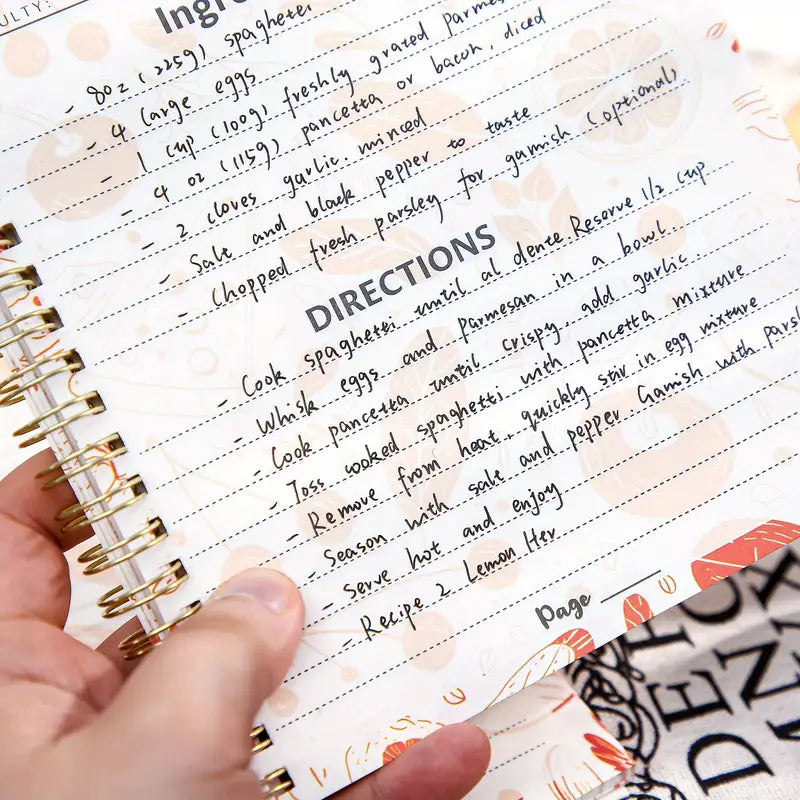 ULTY:
Ingre
- 8oz (225g) spaghetti
- 4 large eggs
- 1 cup (100g) freshly grated Parmes
- 4 oz (115g) pancetta or bacon, diced
- 2 cloves garlic, minced
- Salt and black pepper to taste
- Chopped fresh parsley for garnish (optional)
DIRECTIONS
- Cook spaghetti until al dente. Reserve 1/2 cup
- Whisk eggs and Parmesan in a bowl.
- Cook pancetta until crispy, add garlic.
- Toss cooked spaghetti with pancetta mixture
- Remove from heat, quickly stir in egg mixture
- Season with salt and pepper. Garnish with parsl
- Serve hot and enjoy
- Recipe 2 Lemon Her
Page
DE